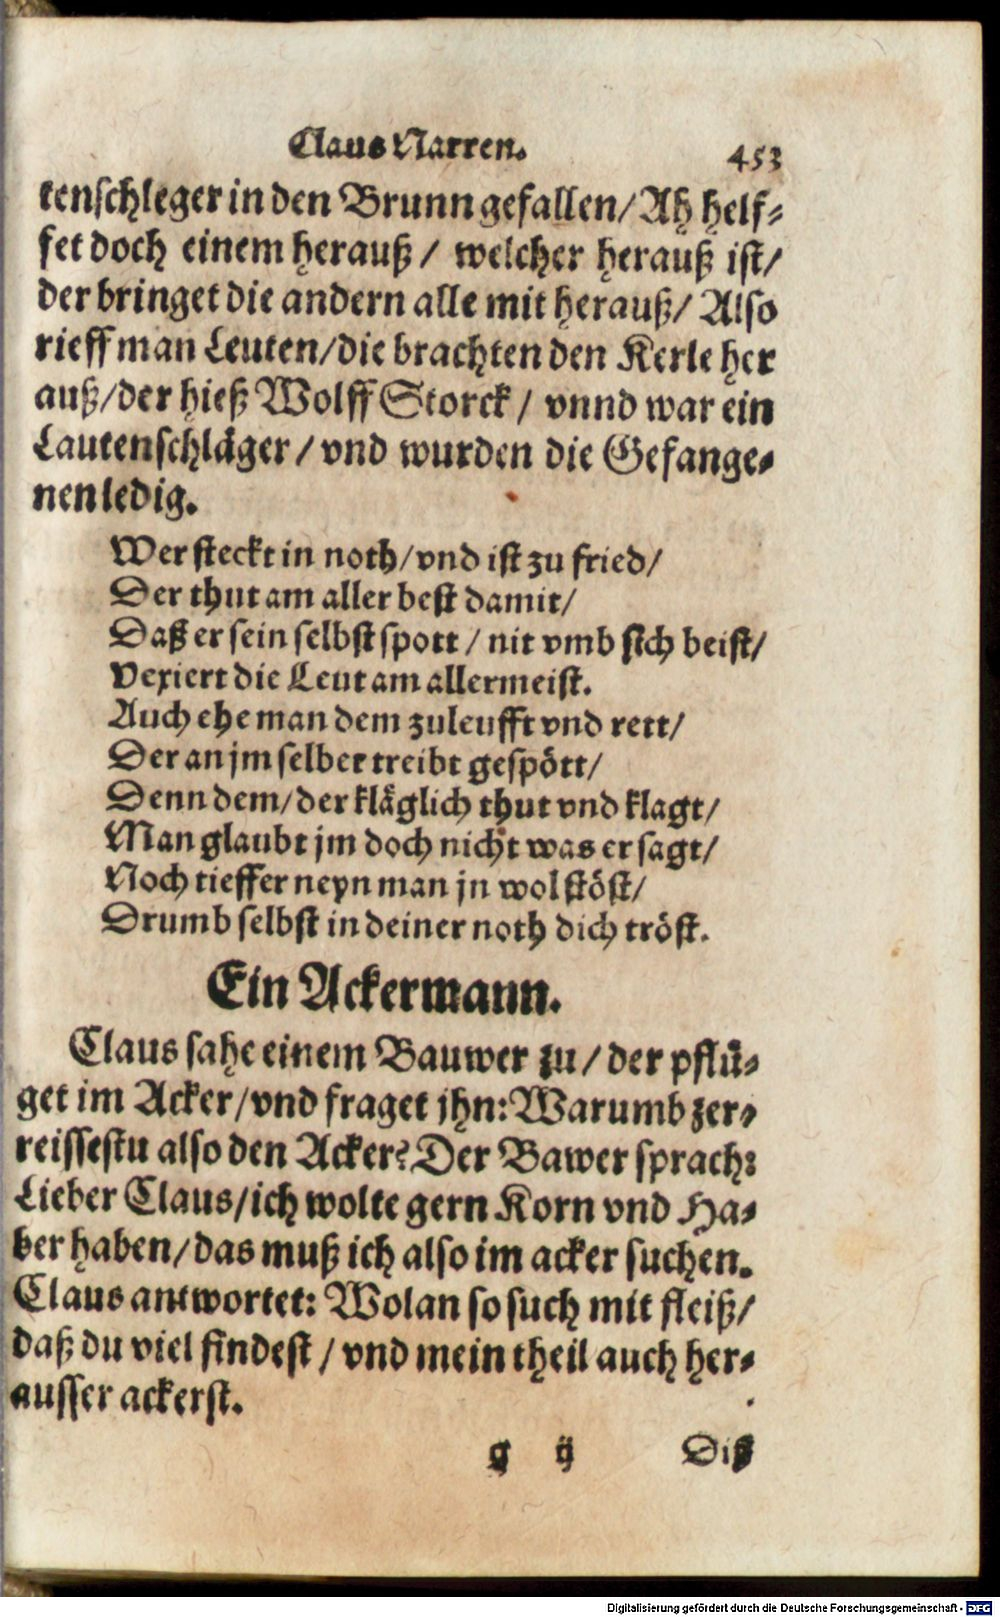 Claus Narren. 453
tenschleger in den Brunn gefallen/ Ah helf-
fet doch einem herauß / welcher herauß ist/
der bringet die andern alle mit herauß/ Also
rieff man Leuten/die brachten den Kerle her
auß/der hieß Wolff Storck / vnnd war ein
Lautenschläger / vnd wurden die Gefange-
nen ledig.
Wer steckt in noth/vnd ist zu fried/
Der thut am aller best damit/
Daß er sein selbst spott / nit vmb sich beist/
Vexiert die Leut am allermeist.
Auch ehe man dem zuleufft vnd rett/
Der an jm selber treibt gespött/
Denn dem/der kläglich thut vnd klagt/
Man glaubt jm doch nicht was er sagt/
Noch tieffer neyn man jn wol stöst/
Drumb selbst in deiner noth dich tröst.
Ein Ackermann.
Claus sahe einem Bauwer zu / der pflü-
get im Acker/vnd fraget jhn: Warumb zer-
reissestu also den Acker? Der Bawer sprach:
Lieber Claus/ich wolte gern Korn vnd Ha-
ber haben/das muß ich also im acker suchen.
Claus antwortet: Wolan so such mit fleiß/
daß du viel findest / vnd mein theil auch her-
ausser ackerst.
g ij Diß
Digitalisierung gefördert durch die Deutsche Forschungsgemeinschaft - DFG